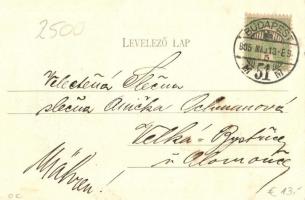 2500
LEVELEZŐ LAP
BUDAPEST
51
Velectěná Slečna
slečna Anička Ochmanová
Velká-Bystřice
u Olomouce
Mähren!
€ 13.-